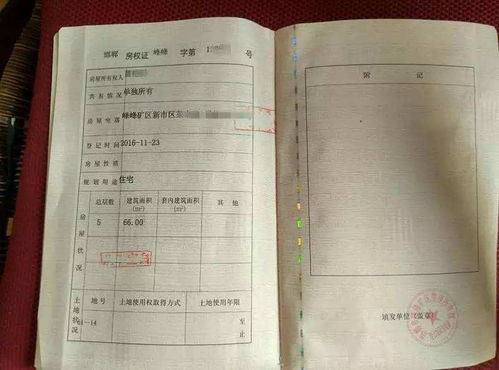 邯郸 房权证 峰峰 字第 1 号
房屋所有权人
共有情况 单独所有
房屋坐落 峰峰矿区新市区东
登记时间 2016-11-23
房屋性质
规划用途 住宅
房屋状况
总层数 建筑面积(m²) 套内建筑面积(m²) 其他
5 66.00
土地状况
地号 土地使用权取得方式 土地使用年限
-14 至
止
附记
填发单位(盖章)